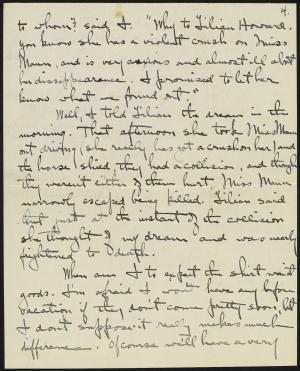 4.
to whom?" said I. "Why to Lilian Howard.
you know she has a violent crush on Miss
Mann, and is very anxious and almost ill about
her disappearance. I promised to let her
know what we found out."
Well, I told Lilian the dream in the
morning. That afternoon she took Miss Mann
out driving (she really has not a crush on her) and
the horse shied, they had a collision, and though
they weren't either of them hurt, Miss Mann
narrowly escaped being killed. Lilian said
that just at the instant of the collision
she thought of my dream and was nearly
frightened to death.
When am I to expect the shirt waist
goods. I'm afraid I won't have any before
vacation if they don't come pretty soon, but
I don't suppose it really makes much
difference. Of course we'll have a very